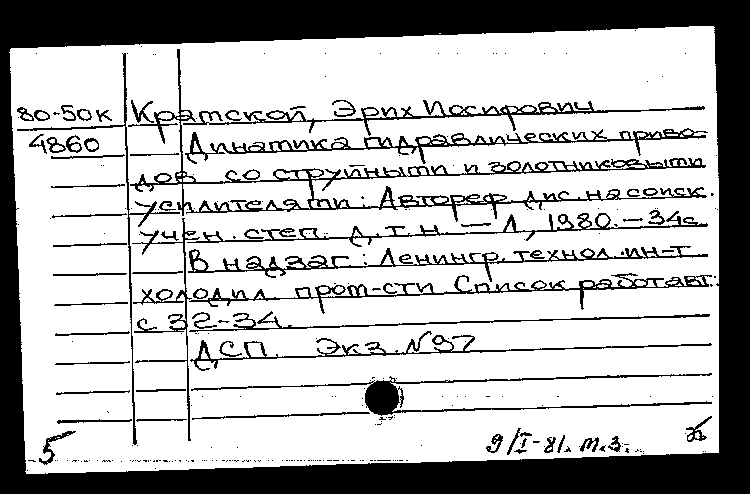 80-50к Кратской, Эрих Иосифович
4860 Динамика гидравлических приво-
дов со струйными и золотниковыми
усилителями: Автореф. дис. на соиск.
учен. степ. д.т.н. — Л, 1980. — 34с
В надзаг: Ленингр. технол. ин-т
холодил. пром-сти Список работ авт.:
с 32-34.
ДСП. Экз. №97
5 9/I-81. т.з.